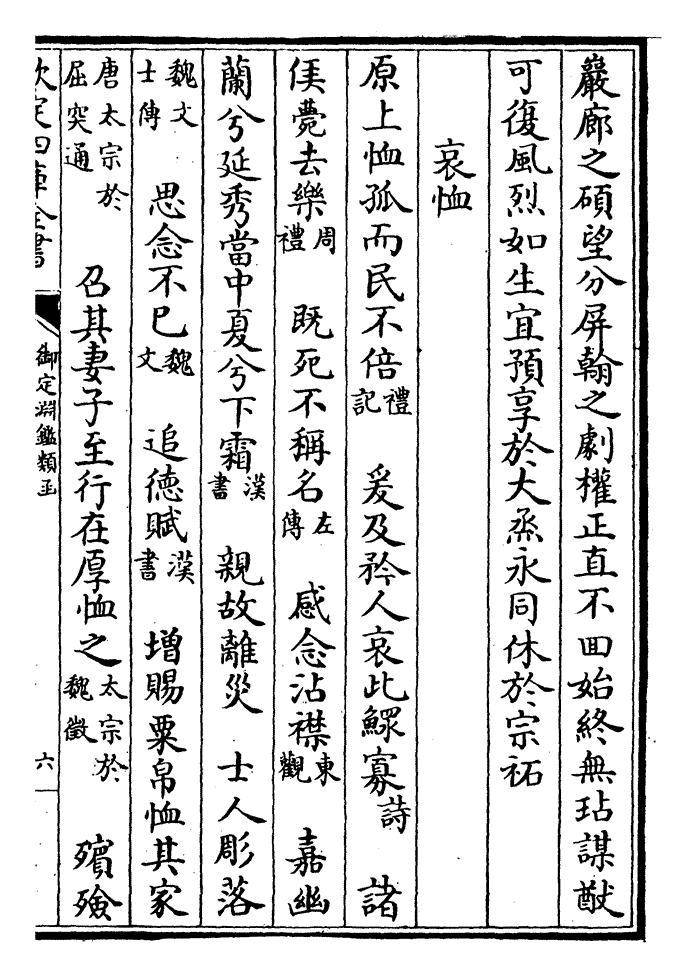 巖廊之碩望分屏翰之劇權正直不回始終無玷謀猷
可復風烈如生宜預享於大烝永同休於宗祏
哀恤
原上恤孤而民不倍禮記 爰及矜人哀此鰥寡詩 諸
侯薨去樂周禮 既死不稱名左傳 感念沾襟東觀 嘉幽
蘭兮延秀當中夏兮下霜漢書 親故離災 士人彫落
魏文士傳 思念不已魏文 追徳賦漢書 增賜粟帛恤其家
唐太宗於屈突通 召其妻子至行在厚恤之太宗於魏徵 殯殮
欽定四庫全書
御定淵鑑類函
六